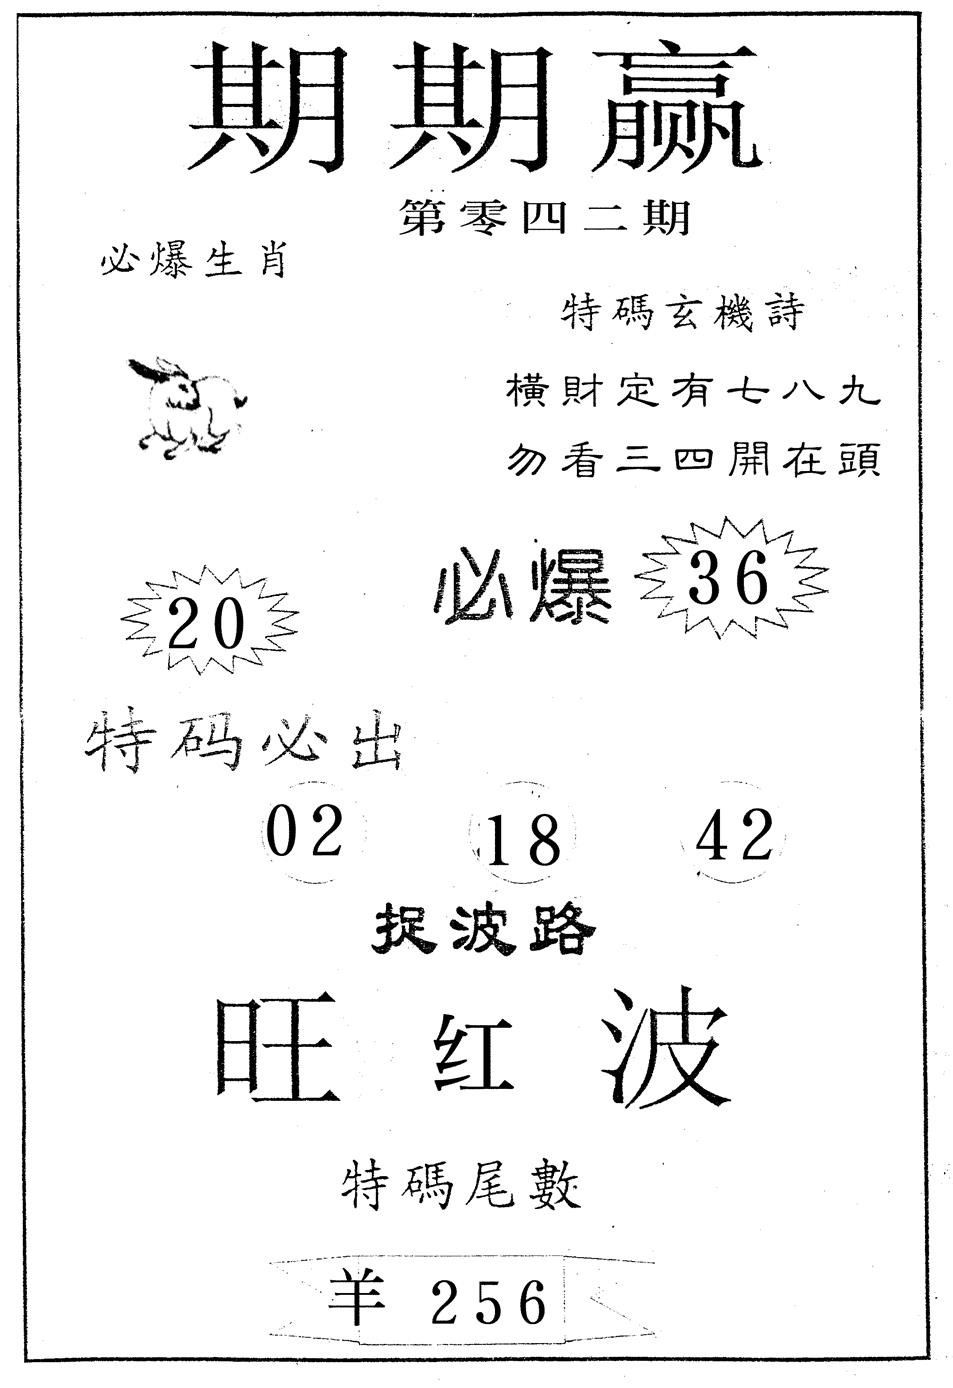 期期赢
第零四二期
必爆生肖
特碼玄機詩
橫財定有七八九
勿看三四開在頭
必爆 36
20
特码必出
02 18 42
捉波路
旺红波
特碼尾數
羊 256